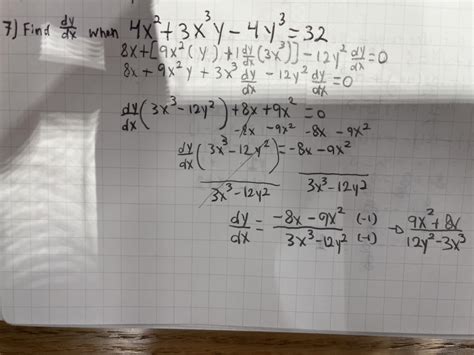 7) Find dy/dx when 4x² + 3x³y - 4y³ = 32
8x + [9x²(y) + 1 dy/dx (3x³)] - 12y² dy/dx = 0
8x + 9x²y + 3x³ dy/dx - 12y² dy/dx = 0
dy/dx (3x³ - 12y²) + 8x + 9x² = 0
-8x - 9x² -8x - 9x²
dy/dx (3x³ - 12y²) = -8x - 9x²
3x³ - 12y² 3x³ - 12y²
dy/dx = (-8x - 9x²)/(3x³ - 12y²) (-1)/(-1) → (9x² + 8x)/(12y² - 3x³)